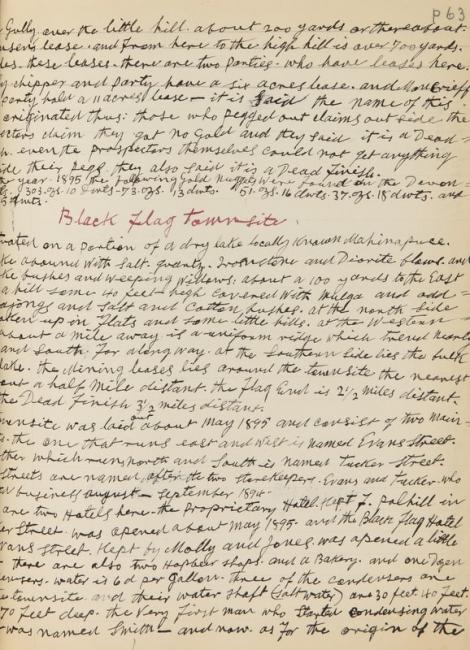 p 63
Gully, over the little hill. about 200 yards or thereabout.
lease. and from here to the high hill is over 700 yards.
these leases. there are two Parties. who have leases here.
chipper and Party have a six acres lease. and
Party hold a 11 acres lease — it is said the name of this
originated thus: those who pegged out claims outside the
claim they got no Gold and they said it is a Dead
even the prospectors themselves could not get anything
their pegs, they also said it is a Dead finish.
year 1895 the following Gold Nuggets were found on the Devon-
303.ozs. 10 dwts - 73.ozs. 13 dwts. 51.ozs. 16 dwts. 37.ozs. 18 dwts. and
5 dwts.
Black Flag Townsite.
on a portion of a dry lake locally known
abound with Salt. quartz. Ironstone and Diorite blows. and
bushes and weeping Willows. about a 100 yards to the East
a hill some 40 feet high covered with Mulga and odd
and Salt and Cotton bushes. at the north side
up in flats and some little hills. at the Western
about a mile away is a uniform ridge which trend
and South. for along way. at the Southern side lies the bulk
lake. the Mining leases lies around the townsite the nearest
a half Mile distant. the flag End is 2 1/2 Miles distant.
the Dead Finish 3 1/2 miles distant.
was laid out about May 1895 and consist of two Main
the one that runs east and West is named Evans Street.
which runs north and South is named Tucker Street.
Streets are named, after the two Storekeepers. Evans and Tucker. who
business August - September 1894.
are two Hotels here - the Proprietary Hotel. Kept J. Polkhill in
Street. was opened about May 1895. and the Black Flag Hotel
Street. Kept by Molly and Jones, was opened a little
there are also two Hopbeer Shops. and a Bakery. and one Dozen
water is 6 d per Gallon. three of the condensers are
townsite and their water shaft (Saltwater) are 30 feet. 40 feet.
70 feet deep. the very first man who started condensing water
was named Smith — and now. as for the origin of the